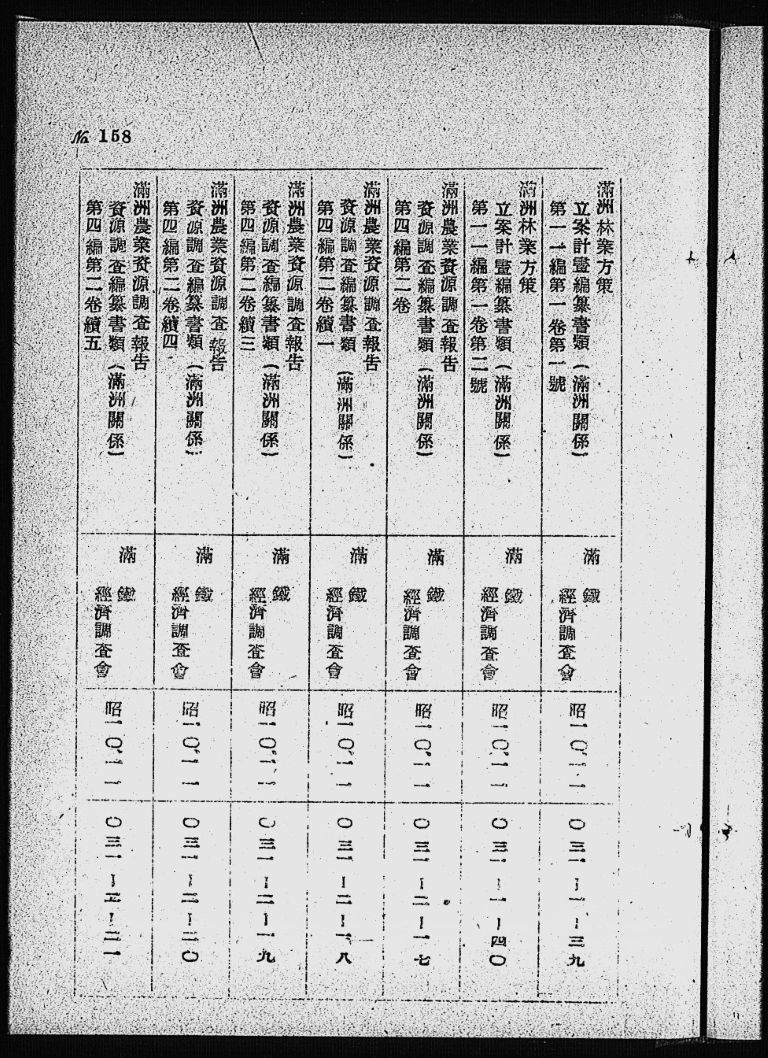 No 158
滿洲林業方策
立案計畫編纂書類(滿洲關係)
第一一編第一卷第一號
滿鐵
經濟調査會
昭一〇、一一
〇三一-一-三九
滿洲林業方策
立案計畫編纂書類(滿洲關係)
第一一編第一卷第二號
滿鐵
經濟調査會
昭一〇、一一
〇三一-一-四〇
滿洲農業資源調査報告
資源調査編纂書類(滿洲關係)
第四編第二卷
滿鐵
經濟調査會
昭一〇、一一
〇三一-二-一七
滿洲農業資源調査報告
資源調査編纂書類(滿洲關係)
第四編第二卷續一
滿鐵
經濟調査會
昭一〇、一一
〇三一-二-一八
滿洲農業資源調査報告
資源調査編纂書類(滿洲關係)
第四編第二卷續三
滿鐵
經濟調査會
昭一〇、一一
〇三一-二-一九
滿洲農業資源調査報告
資源調査編纂書類(滿洲關係)
第四編第二卷續四
滿鐵
經濟調査會
昭一〇、一一
〇三一-二-二〇
滿洲農業資源調査報告
資源調査編纂書類(滿洲關係)
第四編第二卷續五
滿鐵
經濟調査會
昭一〇、一一